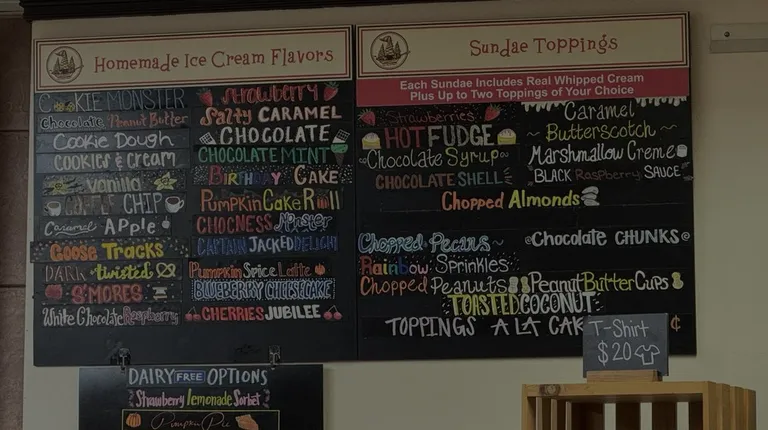 Homemade Ice Cream Flavors
COOKIE MONSTER
Chocolate Peanut Butter
Cookie Dough
COOKIES & CREAM
Vanilla
COFFEE CHIP
Caramel APple
Goose Tracks
DARK & twisted
S'MORES
White Chocolate Raspberry
strawberry
Salty CARAMEL
CHOCOLATE
CHOCOLATE MINT
BIRTHDAY CAKE
PumpkinCake Roll
CHOCNESS Monster
CAPTAIN JACKED DELIGHT
Pumpkin Spice Latte
BLUEBERRY CHEESECAKE
CHERRIES JUBILEE
DAIRY FREE OPTIONS
Strawberry Lemonade Sorbet
Pumpkin Pie
Sundae Toppings
Each Sundae Includes Real Whipped Cream
Plus Up to Two Toppings of Your Choice
Strawberries
HOT FUDGE
Chocolate Syrup
CHOCOLATE SHELL
Caramel
Butterscotch
Marshmallow Creme
BLACK Raspberry SAUCE
Chopped Almonds
Chopped Pecans
Chocolate CHUNKS
Rainbow Sprinkles
Chopped Peanuts
Peanut Butter Cups
TOASTED COCONUT
TOPPINGS A LA CAR
¢
T-Shirt
$20